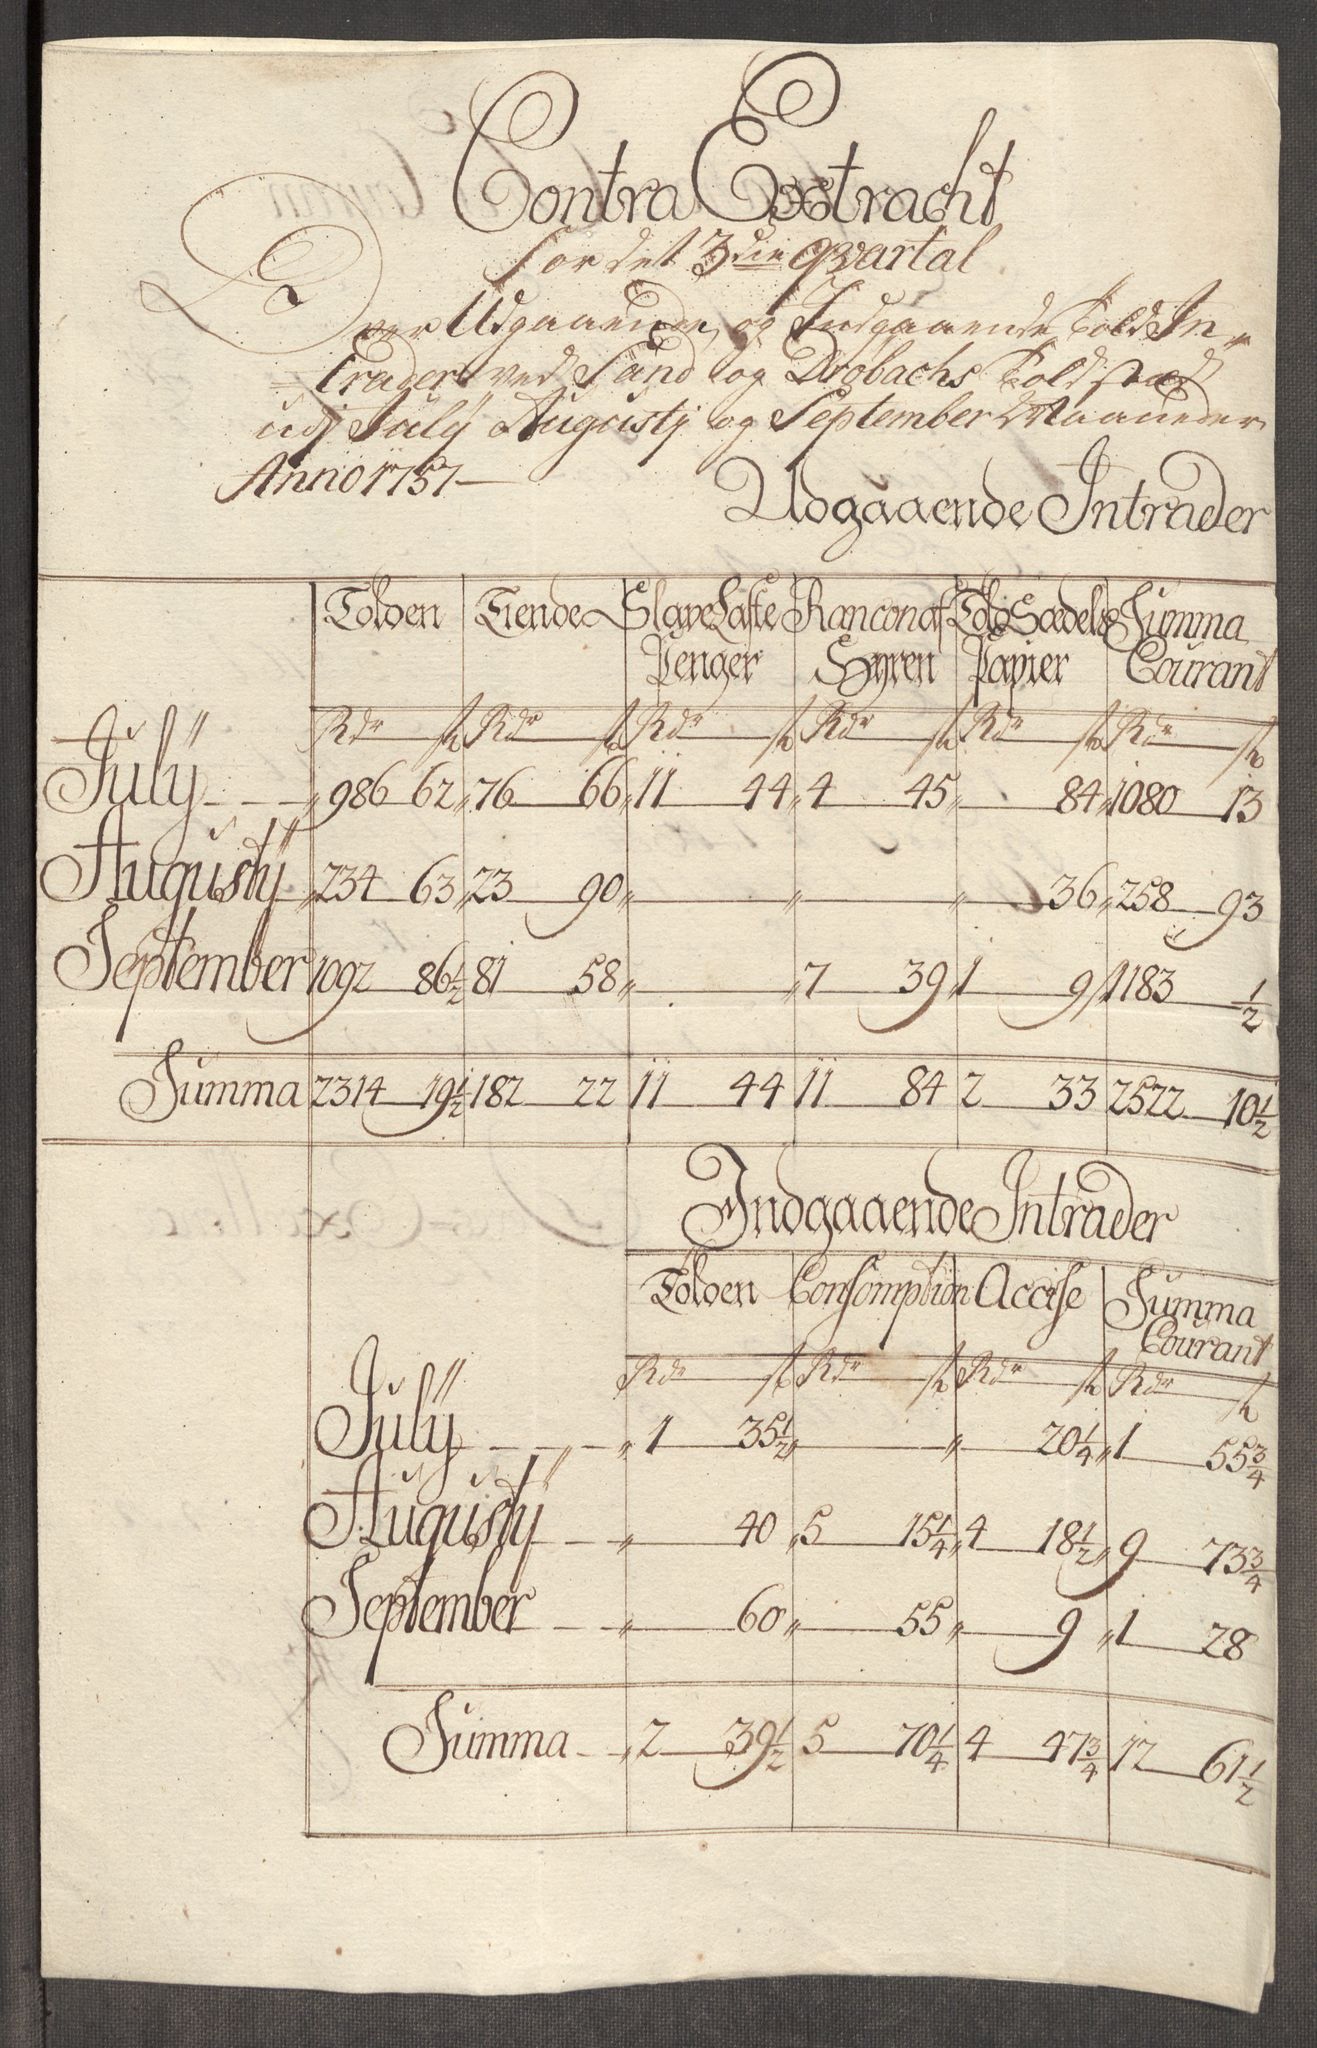 Contra Extracht
for det 3die Qvartal
Over Udgaaende og Indgaaende Told In-
=trader ved Sand og Drøbachs Toldsted
udj July Augustj og September Maaneder
Anno 1757
Udgaaende Intrader
Tolden Tiende Slave Laste Rancon af Told Sædels Summa
Penger Hyren Papier Courant
Rdr ſk Rdr ſk Rdr ſk Rdr ſk Rdr ſk Rdr ſk
Julÿ „986 62 „76 66 „11 44 „4 45 „ 84 „1080 13
Augustÿ „234 63 „23 90 „ „ „ 36 „258 93
September 1092 86½ 81 58 „ „7 39 1 9 1183 ½
Summa 2314 19½ 182 22 11 44 11 84 2 33 2522 10½
Indgaaende Intrader
Tolden Consomption Accise Summa
Courant
Rdr ſk Rdr ſk Rdr ſk Rdr ſk
Julÿ „1 35½ „ „ 20¼ „1 55¾
Augustÿ „ 40 5 15¼ „4 18½ „9 73¾
September „ 60 „ 55 „ 9 „1 28
Summa „2 39½ 5 70¼ 4 47¾ 12 61½